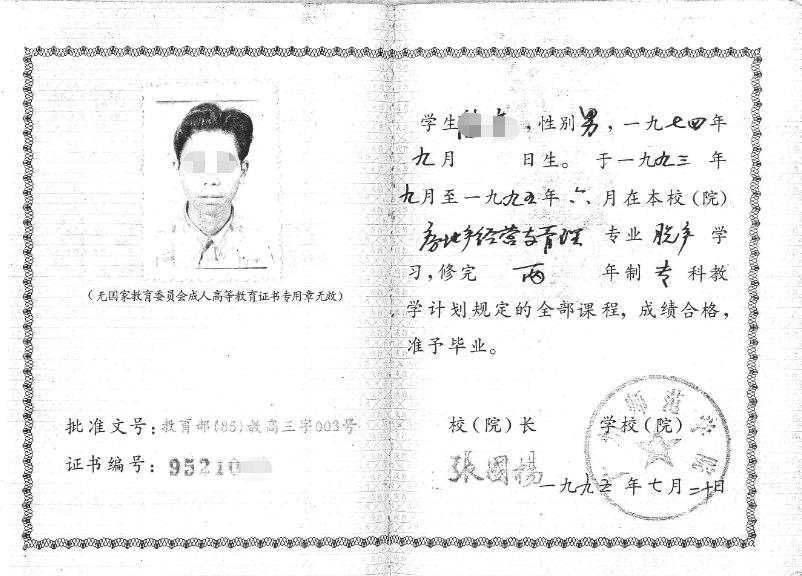 （无国家教育委员会成人高等教育证书专用章无效）
批准文号：教育部(85)教高三字003号
证书编号：95210
学生，性别男，一九七四年
九月 日生。于一九九三 年
九月至一九九五年 六 月在本校（院）
房地产经营与管理 专业 脱产 学
习，修完 两 年制 专 科教
学计划规定的全部课程，成绩合格，
准予毕业。
校（院）长 学校（院）
张国扬
师范学院
一九九五 年七月二十日